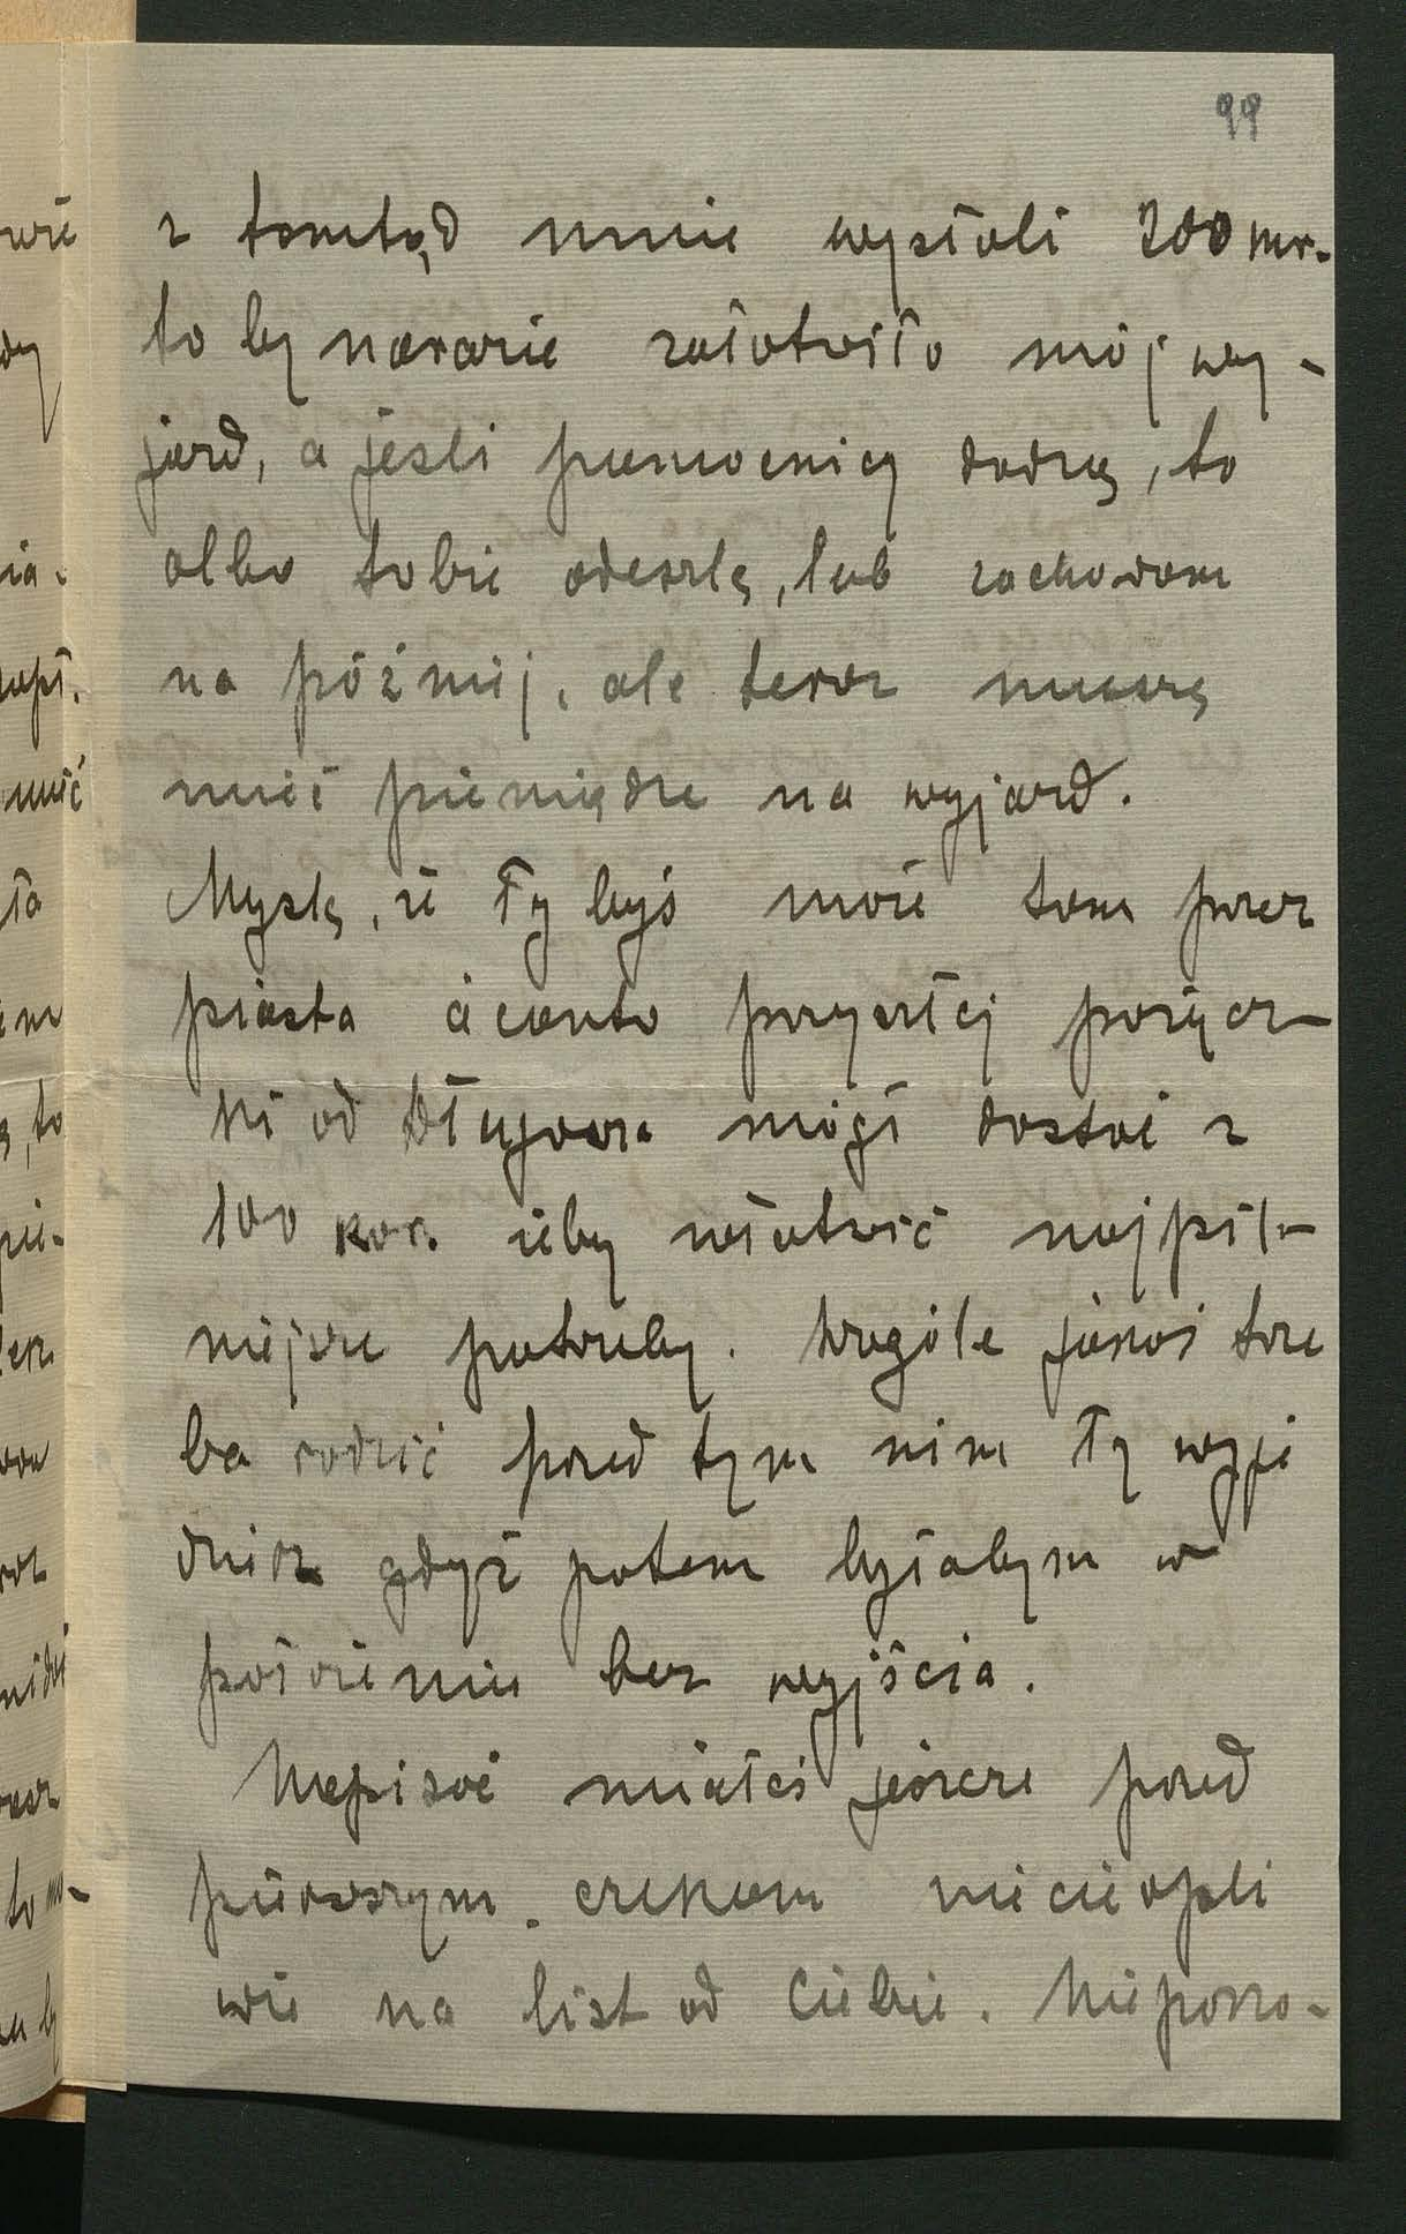 99
z tamtąd mnie wysłali 200 mr.
to by narazie załatwiło mój wy-
jazd, a jeśli pomocnicy dadzą, to
albo tobie odeszlę, lub zachowam
na póżniej, ale teraz muszę
mieć pieniądze na wyjazd.
Myslę, że Ty byś może tam przez
piasta à conto przyszłej pożycz-
ki od Długosza mógł dostać z
100 kor. żeby załatwić najpil-
niejsze potrzeby. Wogóle jakoś trze
ba radzić przed tym nim Ty wyje
dziesz gdyż potem byłabym w
położeniu bez wyjścia.
Napisać miałeś jeszcze przed
pierwszym. czekam niecierpli
wie na list od Ciebie. Niepoko-